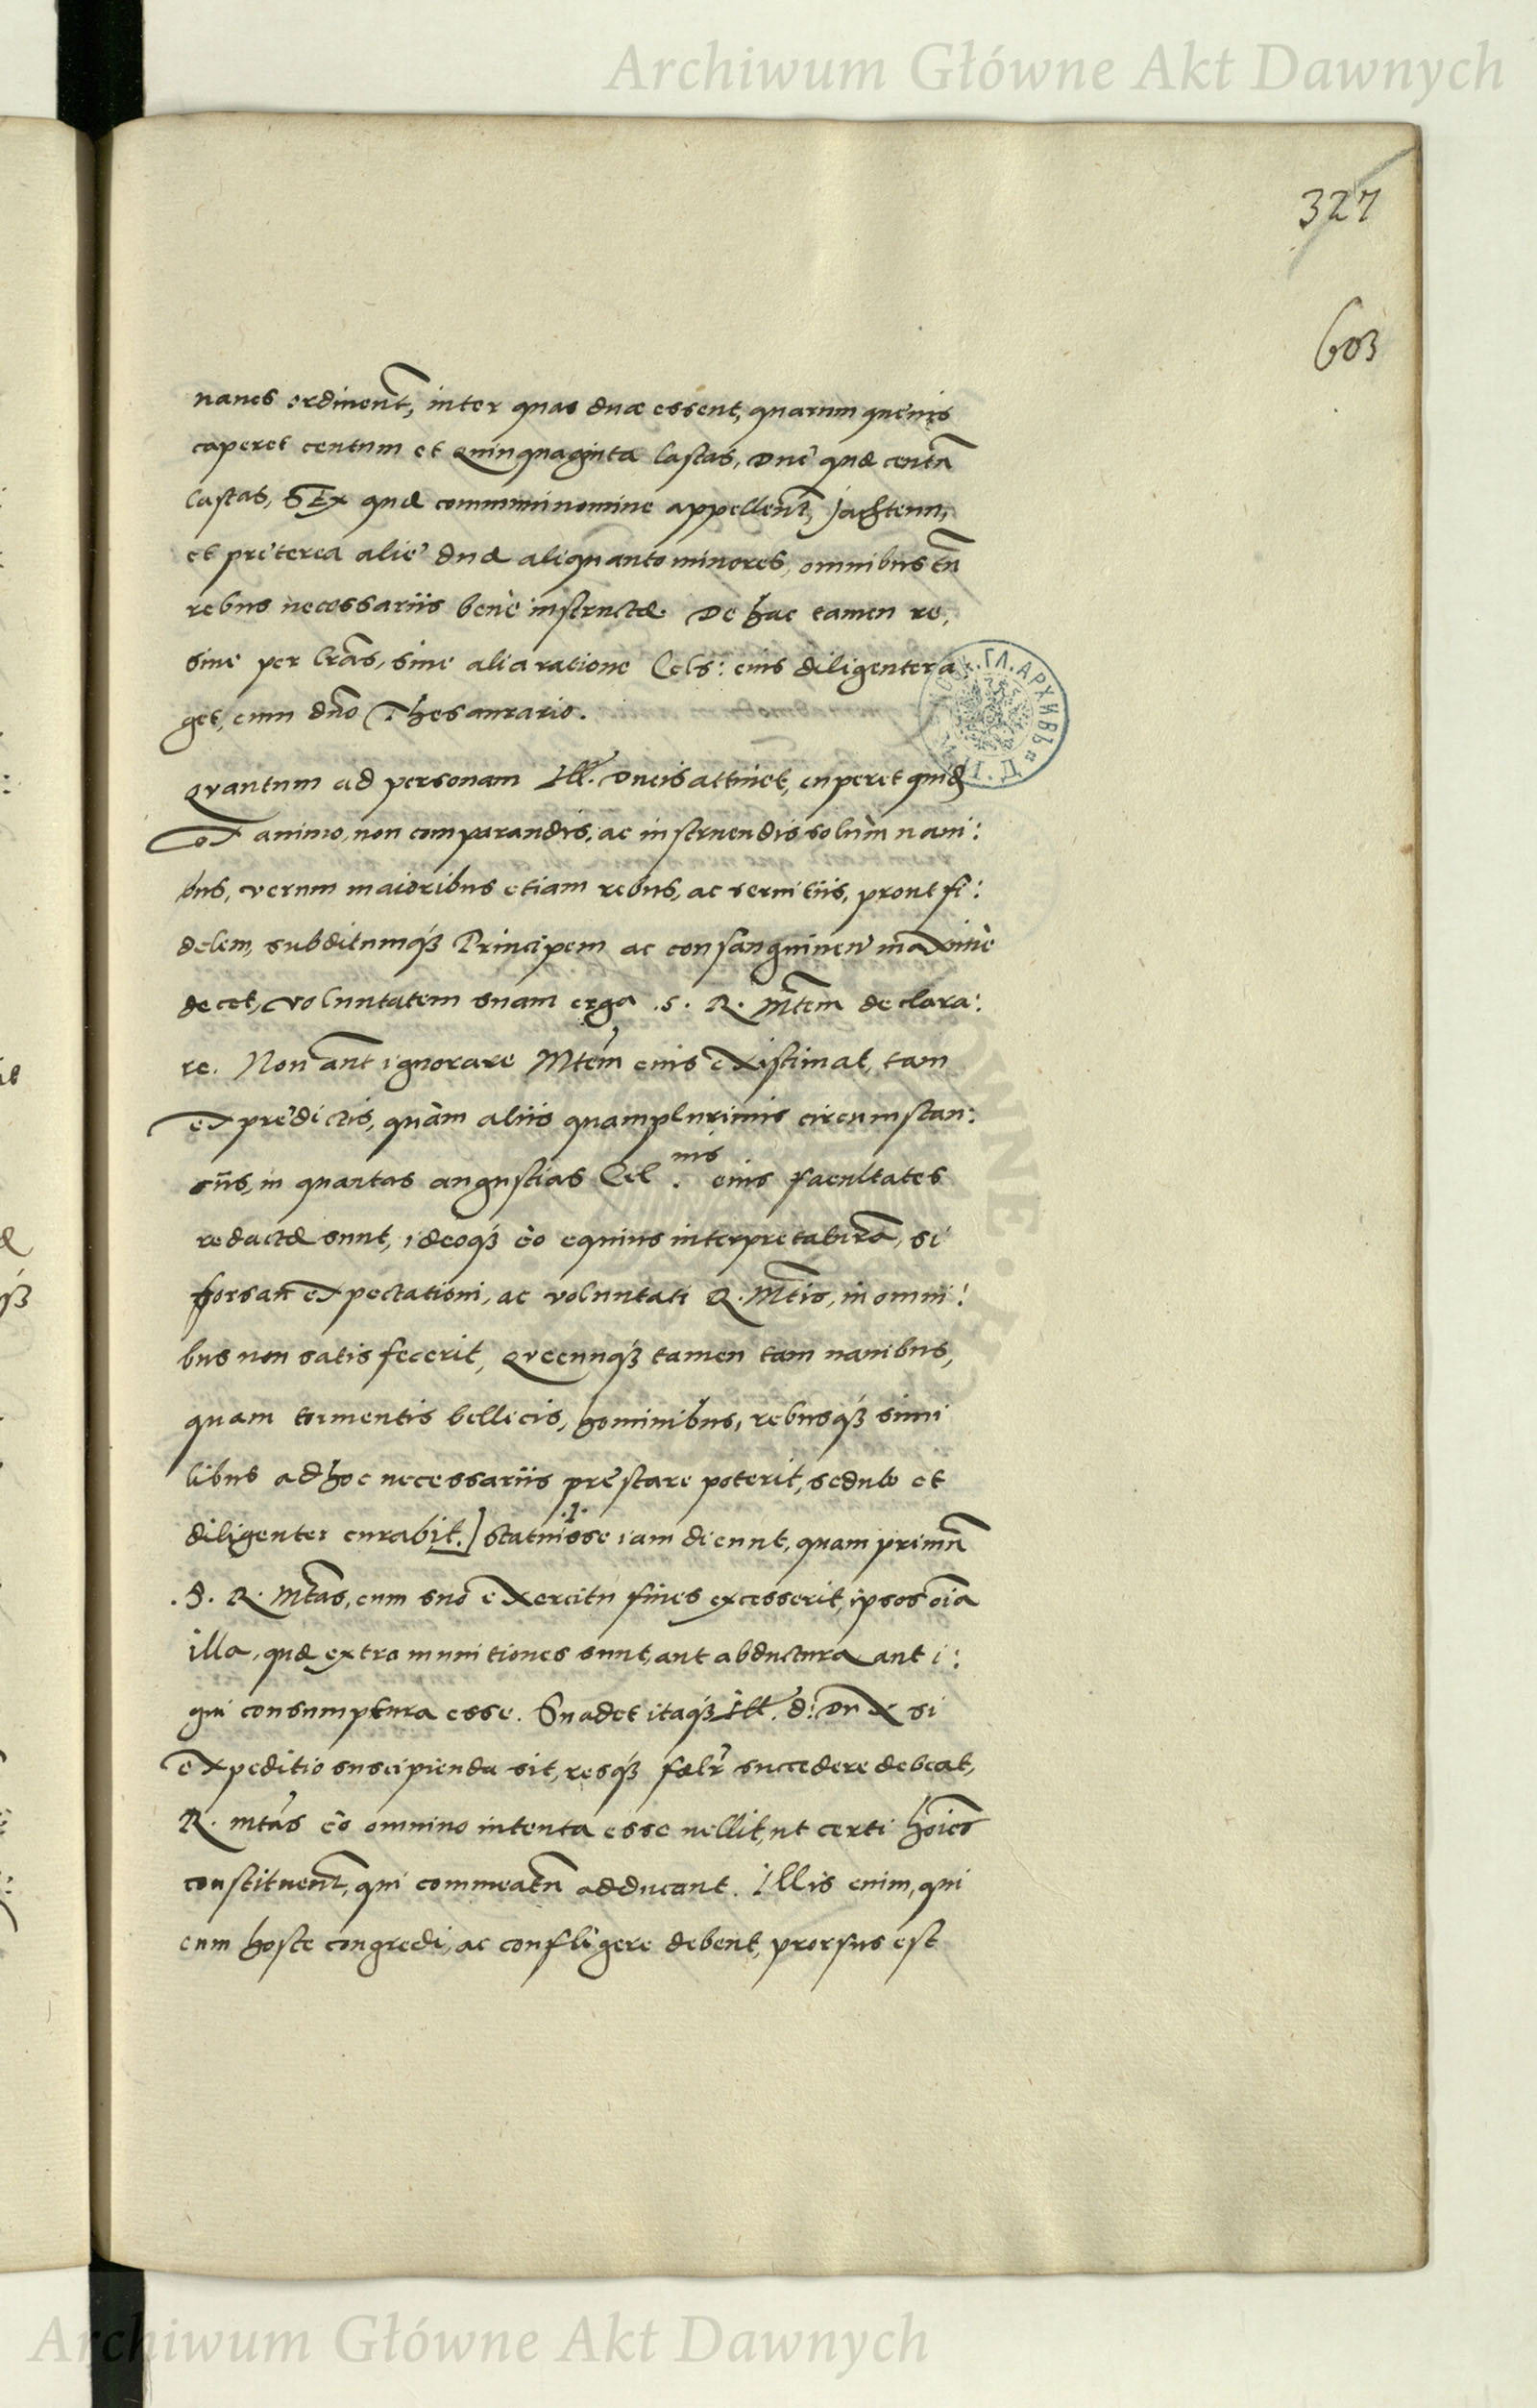 Archiwum Główne Akt Dawnych
327
603
naues ordinent̃, inter quas duæ essent, quarum quęuis
caperet centum et Quinquaginta lastas, Duę quæ centũ
lastas, SEx quæ communi nomine appellent̃, Jachtenn,
et pręterea alię duæ aliquanto minores, omnibus tñ
rebus necessariis benè instructæ. De hac tamen re,
siue per lrãs, siue alia ratione Cels: eius diligenter a
get, cum dño Thesaurario.
Quantum ad personam Ill. Ducis attinet, cuperet quidẽ
ex animo, non comparandis, ac instruendis solùm naui:
bus, verum maioribus etiam rebus, ac seruitiis, prout fi:
delem, subditumq́ꝫ Principem ac consanguineũ maximè
decet, voluntatem suam erga .S. R. Mtem̃ declara:
re. Non aũt ignorare Mtem̃ eius existimat, tam
ex prędictis, quàm aliis quamplurimis circumstan:
tiis, in quantas angustias Cel.nis eius facultates
redactæ sunt, ideoq́ꝫ eò equius interpretaturã, si
forsañ expectationi, ac voluntati R. Mtis̃, in omni:
bus non satisfecerit, Quecunq́ꝫ tamen tam nauibus,
quam tormentis bellicis, hominibus, rebusq́ꝫ simi
libus ad hoc necessariis pręstare poterit, sedulo et
diligenter curabit.] Statuisse iam dicunt, quam primũ
.S. R. Mtas̃, cum suo exercitu fines excesserit, ipsos oĩa
illa, quæ extra munitiones sunt, aut abductura aut i:
gni consumptura esse. Suadet itaq́ꝫ Ill. d: Dux si
expeditio suscipienda sit, resq́ꝫ fælr̃ succedere debeat,
R. mtas̃ eò omnino intenta esse uellit, ut certi hoĩes
constituent̃, qui commeatũ adducant. Illis enim, qui
cum hoste congredi, ac confligere debent, prorsus est
Archiwum Główne Akt Dawnych